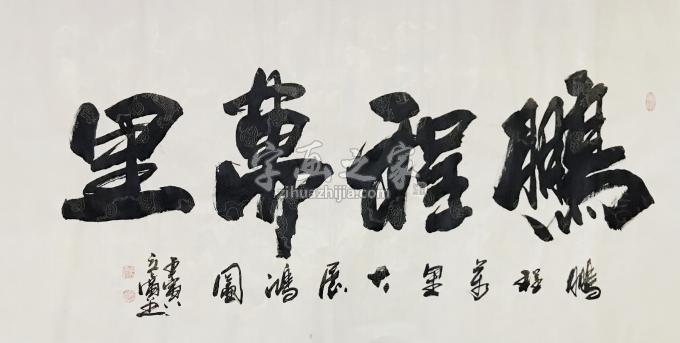 鵬程萬里
鵬程萬里大展鴻圖
壬寅
字画之家
zihuazhijia.com